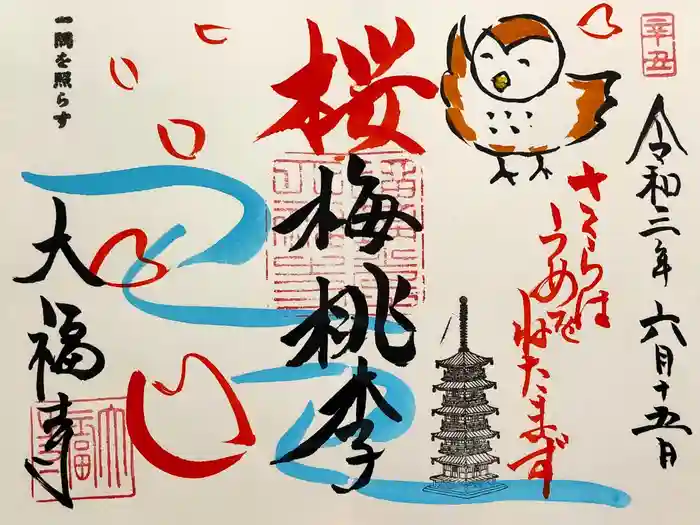 辛丑
令和三年 六月十五日
さくらは
うめを
ねたまず
桜梅桃李
一隅を照らす
大福寺